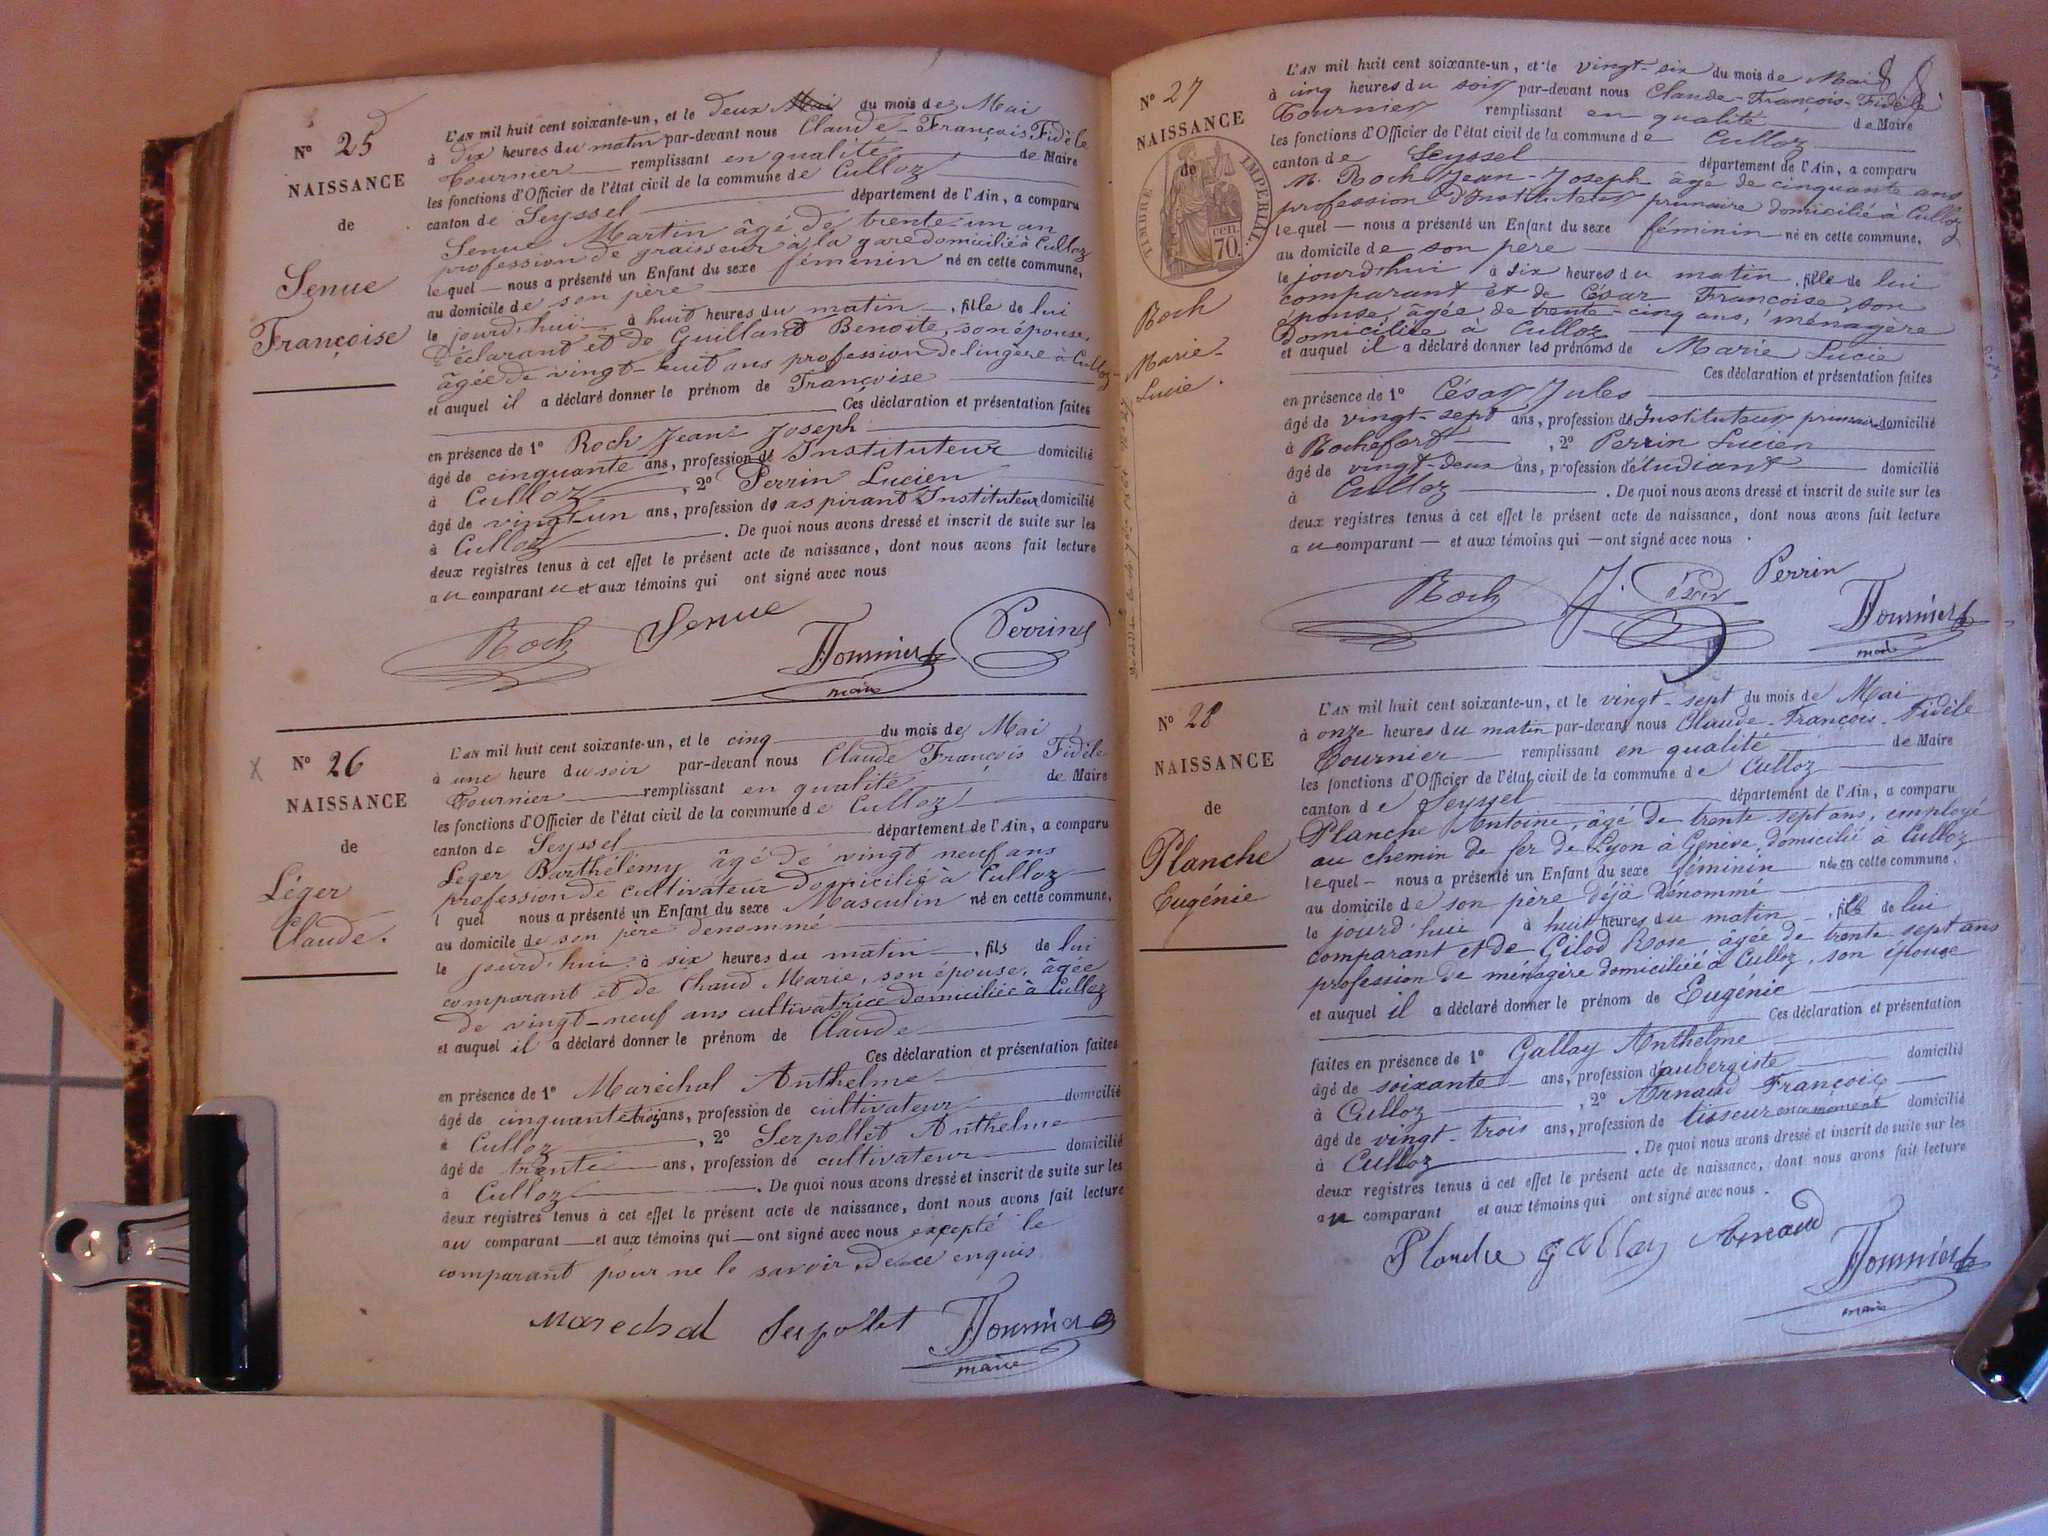 N° 25
NAISSANCE
de
Senue
Françoise
L'AN mil huit cent soixante-un, et le deux Mai du mois de Mai
à dix heures du matin par-devant nous Claude-François Fidèle
Tournier remplissant en qualité de Maire
les fonctions d'Officier de l'état civil de la commune de Culloz
canton de Seyssel département de l'Ain, a comparu
Senue Martin âgé de trente un an
profession de graisseur à la gare domicilié à Culloz
lequel nous a présenté un Enfant du sexe féminin né en cette commune,
au domicile de son père
le jourd'hui à huit heures du matin, fille de lui
déclarant et de Guilland Benoite, son épouse,
âgée de vingt-huit ans profession de lingère à Culloz
et auquel il a déclaré donner le prénom de Françoise
Ces déclaration et présentation faites
en présence de 1° Roch Jean Joseph
âgé de cinquante ans, profession de Instituteur domicilié
à Culloz, 2° Perrin Lucien
âgé de vingt-un ans, profession de aspirant Instituteur domicilié
à Culloz. De quoi nous avons dressé et inscrit de suite sur les
deux registres tenus à cet effet le présent acte de naissance, dont nous avons fait lecture
au comparant et aux témoins qui ont signé avec nous
Roch Senue Tournier Perrin
maire
N° 26
NAISSANCE
de
Léger
Claude.
L'AN mil huit cent soixante-un, et le cinq du mois de Mai
à une heure du soir par-devant nous Claude François Fidèle
Tournier remplissant en qualité de Maire
les fonctions d'Officier de l'état civil de la commune de Culloz
canton de Seyssel département de l'Ain, a comparu
Leger Barthélémy âgé de vingt neuf ans
profession de cultivateur domicilié à Culloz
l quel nous a présenté un Enfant du sexe Masculin né en cette commune,
au domicile de son père dénommé
le jourd'hui à six heures du matin, fils de lui
comparant et de Chaud Marie, son épouse, âgée
de vingt-neuf ans cultivatrice domiciliée à Culloz
et auquel il a déclaré donner le prénom de Claude
Ces déclaration et présentation faites
en présence de 1° Maréchal Anthelme
âgé de cinquante trois ans, profession de cultivateur domicilié
à Culloz, 2° Serpollet Anthelme
âgé de trente ans, profession de cultivateur domicilié
à Culloz. De quoi nous avons dressé et inscrit de suite sur les
deux registres tenus à cet effet le présent acte de naissance, dont nous avons fait lecture
au comparant et aux témoins qui ont signé avec nous excepté le
comparant pour ne le savoir, de ce enquis
Marechal Serpollet Tournier
maire
N° 27
NAISSANCE
de
TIMBRE IMPERIAL
70 cen.
Roch
Marie-
Lucie.
88
L'AN mil huit cent soixante-un, et le vingt-six du mois de Mai
à cinq heures du soir par-devant nous Claude-François-Fidèle
Tournier remplissant en qualité de Maire
les fonctions d'Officier de l'état civil de la commune de Culloz
canton de Seyssel département de l'Ain, a comparu
M. Roch Jean-Joseph âgé de cinquante ans
profession d'Instituteur primaire domicilié à Culloz
lequel nous a présenté un Enfant du sexe féminin né en cette commune,
au domicile de son père
le jourd'hui à six heures du matin, fille de lui
comparant et de César Françoise, son
épouse, âgée de trente-cinq ans, ménagère
domiciliée à Culloz
et auquel il a déclaré donner les prénoms de Marie Lucie
Ces déclaration et présentation faites
en présence de 1° César Jules
âgé de vingt-sept ans, profession de Instituteur primaire domicilié
à Rochefort, 2° Perrin Lucien
âgé de vingt-deux ans, profession d'étudiant domicilié
à Culloz. De quoi nous avons dressé et inscrit de suite sur les
deux registres tenus à cet effet le présent acte de naissance, dont nous avons fait lecture
au comparant et aux témoins qui ont signé avec nous.
Roch J. César Perrin Tournier
maire
N° 28
NAISSANCE
de
Planche
Eugénie
L'AN mil huit cent soixante-un, et le vingt-sept du mois de Mai
à onze heures du matin par-devant nous Claude-François-Fidèle
Tournier remplissant en qualité de Maire
les fonctions d'Officier de l'état civil de la commune de Culloz
canton de Seyssel département de l'Ain, a comparu
Planche Antoine, âgé de trente sept ans, employé
au chemin de fer de Lyon à Genève, domicilié à Culloz
lequel nous a présenté un Enfant du sexe féminin née en cette commune,
au domicile de son père déjà dénommé
le jourd'hui à huit heures du matin, fille de lui
comparant et de Gilod Rose âgée de trente sept ans
profession de ménagère domiciliée à Culloz, son épouse
et auquel il a déclaré donner le prénom de Eugénie
Ces déclaration et présentation
faites en présence de 1° Gallay Anthelme
âgé de soixante ans, profession d'aubergiste domicilié
à Culloz, 2° Arnaud François
âgé de vingt-trois ans, profession de tisseur domicilié
à Culloz. De quoi nous avons dressé et inscrit de suite sur les
deux registres tenus à cet effet le présent acte de naissance, dont nous avons fait lecture
au comparant et aux témoins qui ont signé avec nous.
Planche Gallay Arnaud Tournier
maire